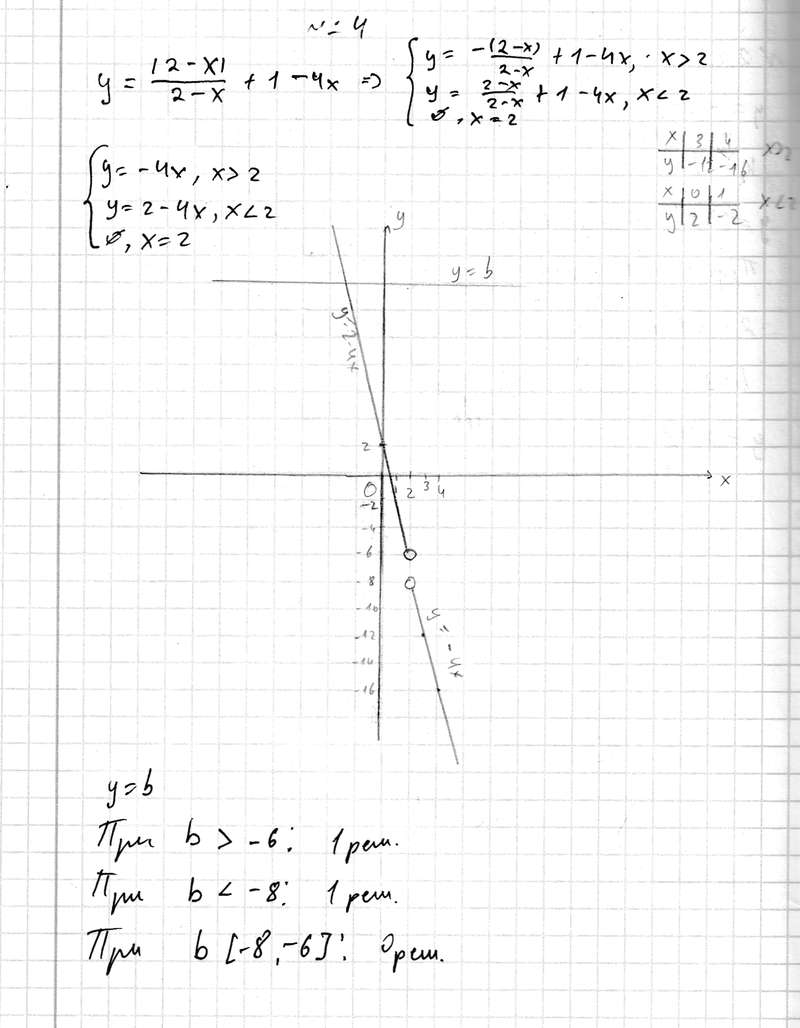 № 4
y = |2-x|/(2-x) + 1 - 4x => { y = -(2-x)/(2-x) + 1 - 4x, x > 2
y = (2-x)/(2-x) + 1 - 4x, x < 2
∅, x = 2
x | 3 | 4 x>2
y | -12 | -16
x | 0 | 1 x<2
y | 2 | -2
{ y = -4x, x > 2
y = 2 - 4x, x < 2
∅, x = 2
y
y = b
y=2-4x
2
x
0 1 2 3 4
-2
-4
-6
-8
-10
-12
-14
-16
y = -4x
y = b
При b > -6: 1 реш.
При b < -8: 1 реш.
При b [-8, -6]: 0 реш.